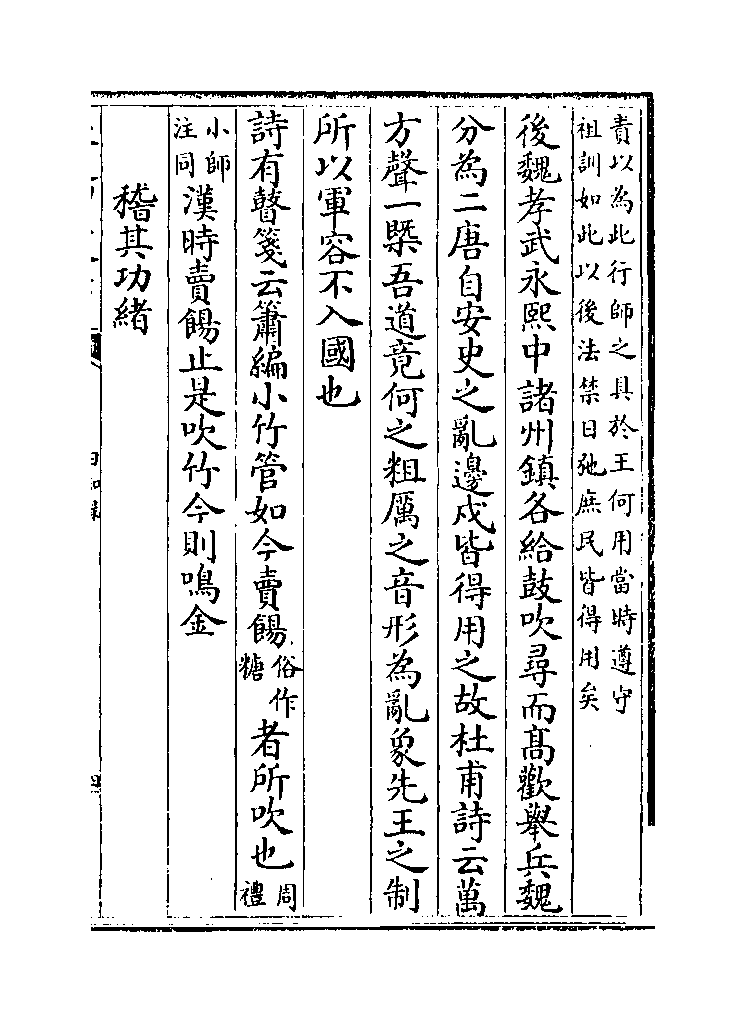 責以為此行師之具於王何用當時遵守
祖訓如此以後法禁日弛庶民皆得用矣
後魏孝武永熙中諸州鎮各給鼓吹尋而高歡舉兵魏
分為二唐自安史之亂邊戍皆得用之故杜甫詩云萬
方聲一槩吾道竟何之粗厲之音形為亂象先王之制
所以軍容不入國也
詩有瞽箋云簫編小竹管如今賣餳俗作糖者所吹也周禮
小師注同漢時賣餳止是吹竹今則鳴金
稽其功緒